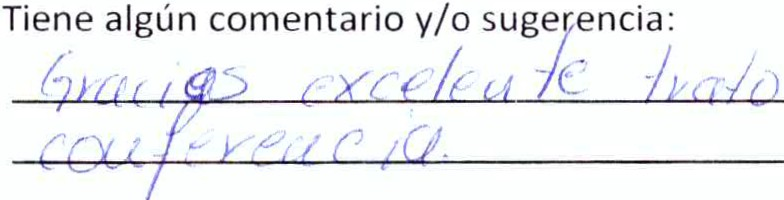 Tiene algún comentario y/o sugerencia:
Gracias excelente trato
conferencia.